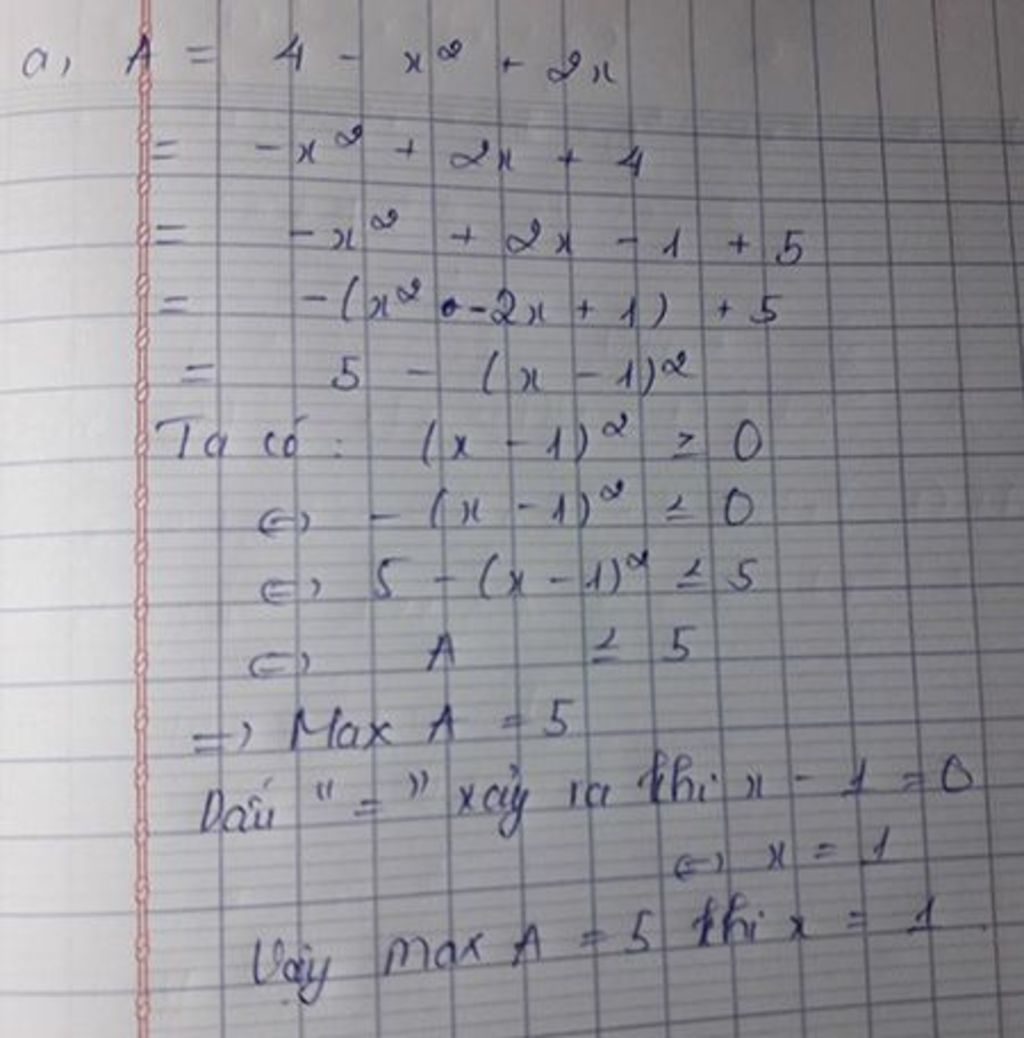 a, A = 4 - x² + 2x
= -x² + 2x + 4
= -x² + 2x - 1 + 5
= -(x² - 2x + 1) + 5
= 5 - (x - 1)²
Ta có : (x - 1)² ≥ 0
⇔ - (x - 1)² ≤ 0
⇔ 5 - (x - 1)² ≤ 5
⇔ A ≤ 5
=> Max A = 5
Dấu " = " xảy ra khi x - 1 = 0
⇔ x = 1
Vậy max A = 5 khi x = 1.